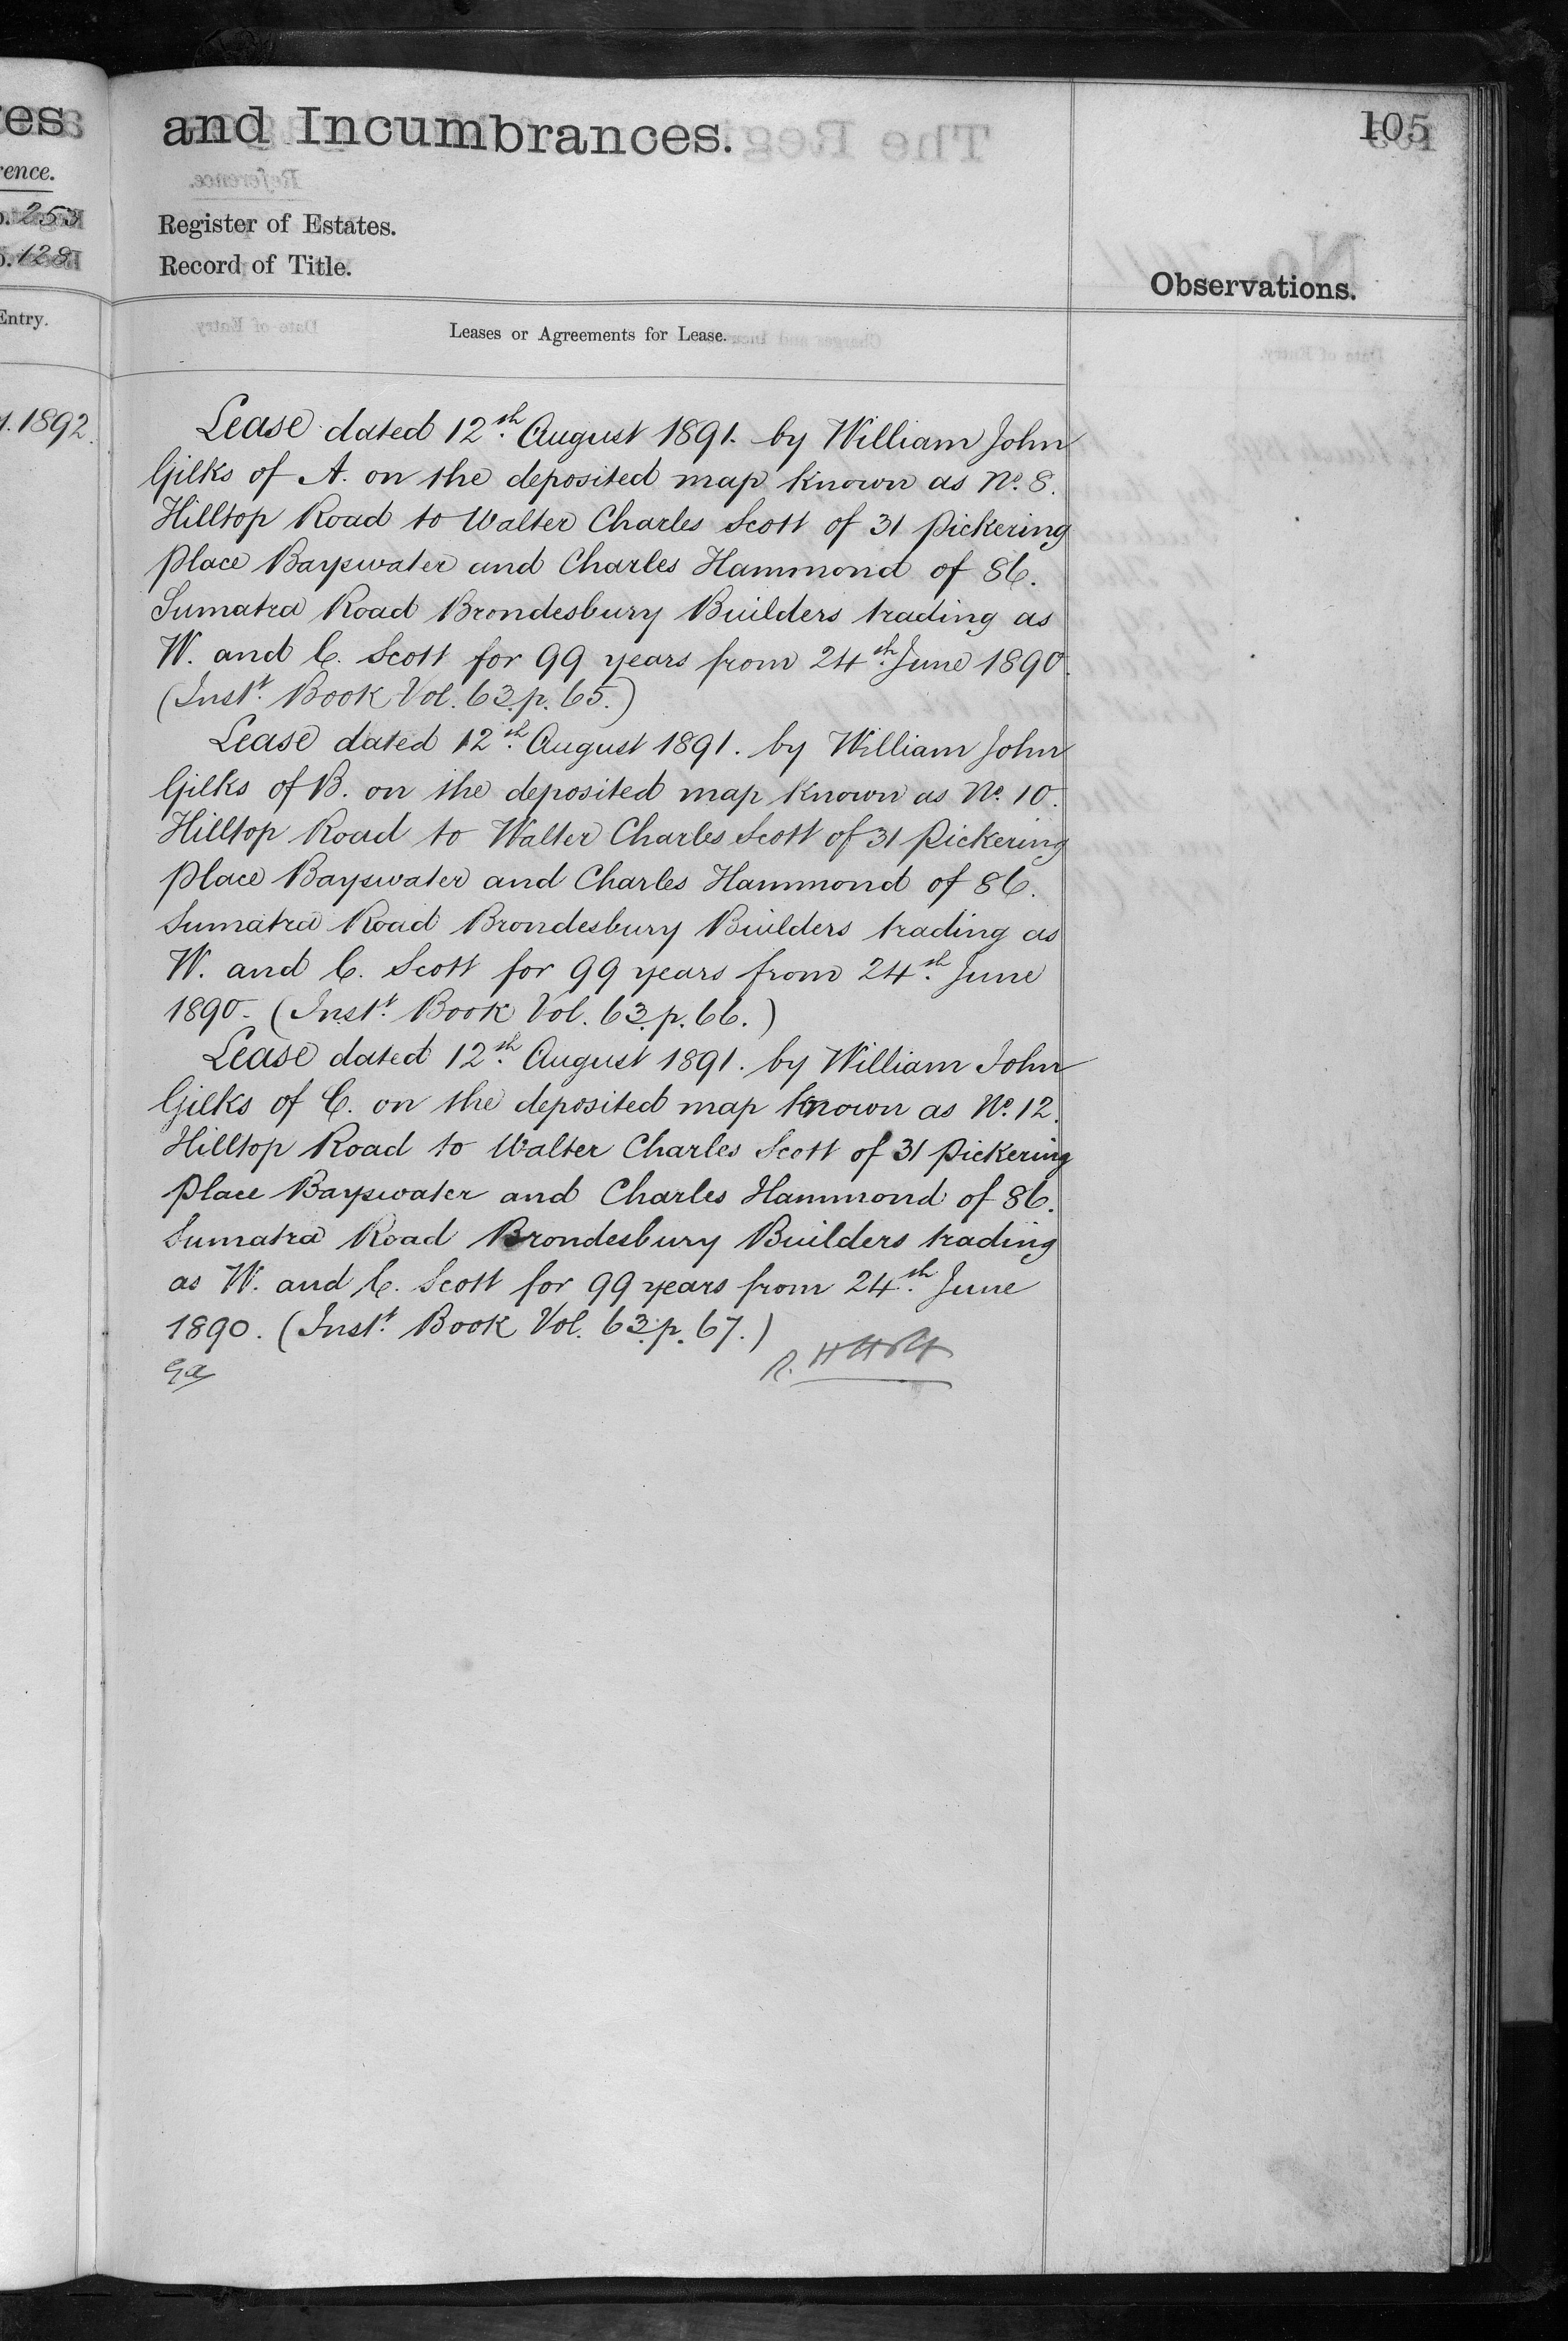 es
rence.
253
128
Entry.
1892.
and Incumbrances.
105
Register of Estates.
Record of Title.
Observations.
Leases or Agreements for Lease.
Lease dated 12th. August 1891. by William John
Gilks of A. on the deposited map known as No. 8.
Hilltop Road to Walter Charles Scott of 31 Pickering
Place Bayswater and Charles Hammond of 86.
Sumatra Road Brondesbury Builders trading as
W. and C. Scott for 99 years from 24th. June 1890.
(Inst. Book Vol. 63. p. 65.)
Lease dated 12th. August 1891. by William John
Gilks of B. on the deposited map known as No. 10.
Hilltop Road to Walter Charles Scott of 31 Pickering
Place Bayswater and Charles Hammond of 86.
Sumatra Road Brondesbury Builders trading as
W. and C. Scott for 99 years from 24th. June
1890. (Inst. Book Vol. 63. p. 66.)
Lease dated 12th. August 1891. by William John
Gilks of C. on the deposited map known as No. 12.
Hilltop Road to Walter Charles Scott of 31 Pickering
Place Bayswater and Charles Hammond of 86.
Sumatra Road Brondesbury Builders trading
as W. and C. Scott for 99 years from 24th. June
1890. (Inst. Book Vol. 63. p. 67.)